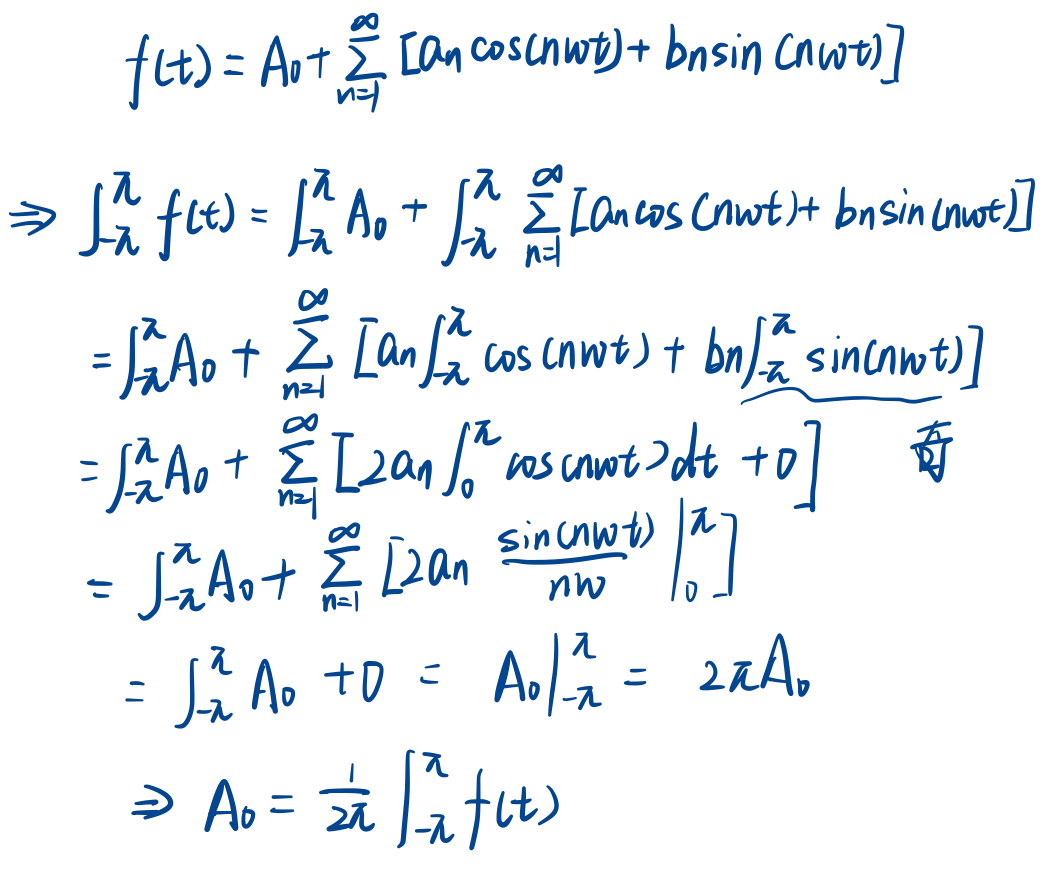 f(t) = A₀ + ∑_{n=1}^{∞} [an cos(nwt) + bn sin(nwt)]
⇒ ∫_{-π}^{π} f(t) = ∫_{-π}^{π} A₀ + ∫_{-π}^{π} ∑_{n=1}^{∞} [an cos(nwt) + bn sin(nwt)]
= ∫_{-π}^{π} A₀ + ∑_{n=1}^{∞} [an ∫_{-π}^{π} cos(nwt) + bn ∫_{-π}^{π} sin(nwt)]
= ∫_{-π}^{π} A₀ + ∑_{n=1}^{∞} [2an ∫_{0}^{π} cos(nwt)dt + 0]
= ∫_{-π}^{π} A₀ + ∑_{n=1}^{∞} [2an \frac{sin(nwt)}{nw} |_{0}^{π}]
= ∫_{-π}^{π} A₀ + 0 = A₀|_{-π}^{π} = 2πA₀
⇒ A₀ = \frac{1}{2π} ∫_{-π}^{π} f(t)